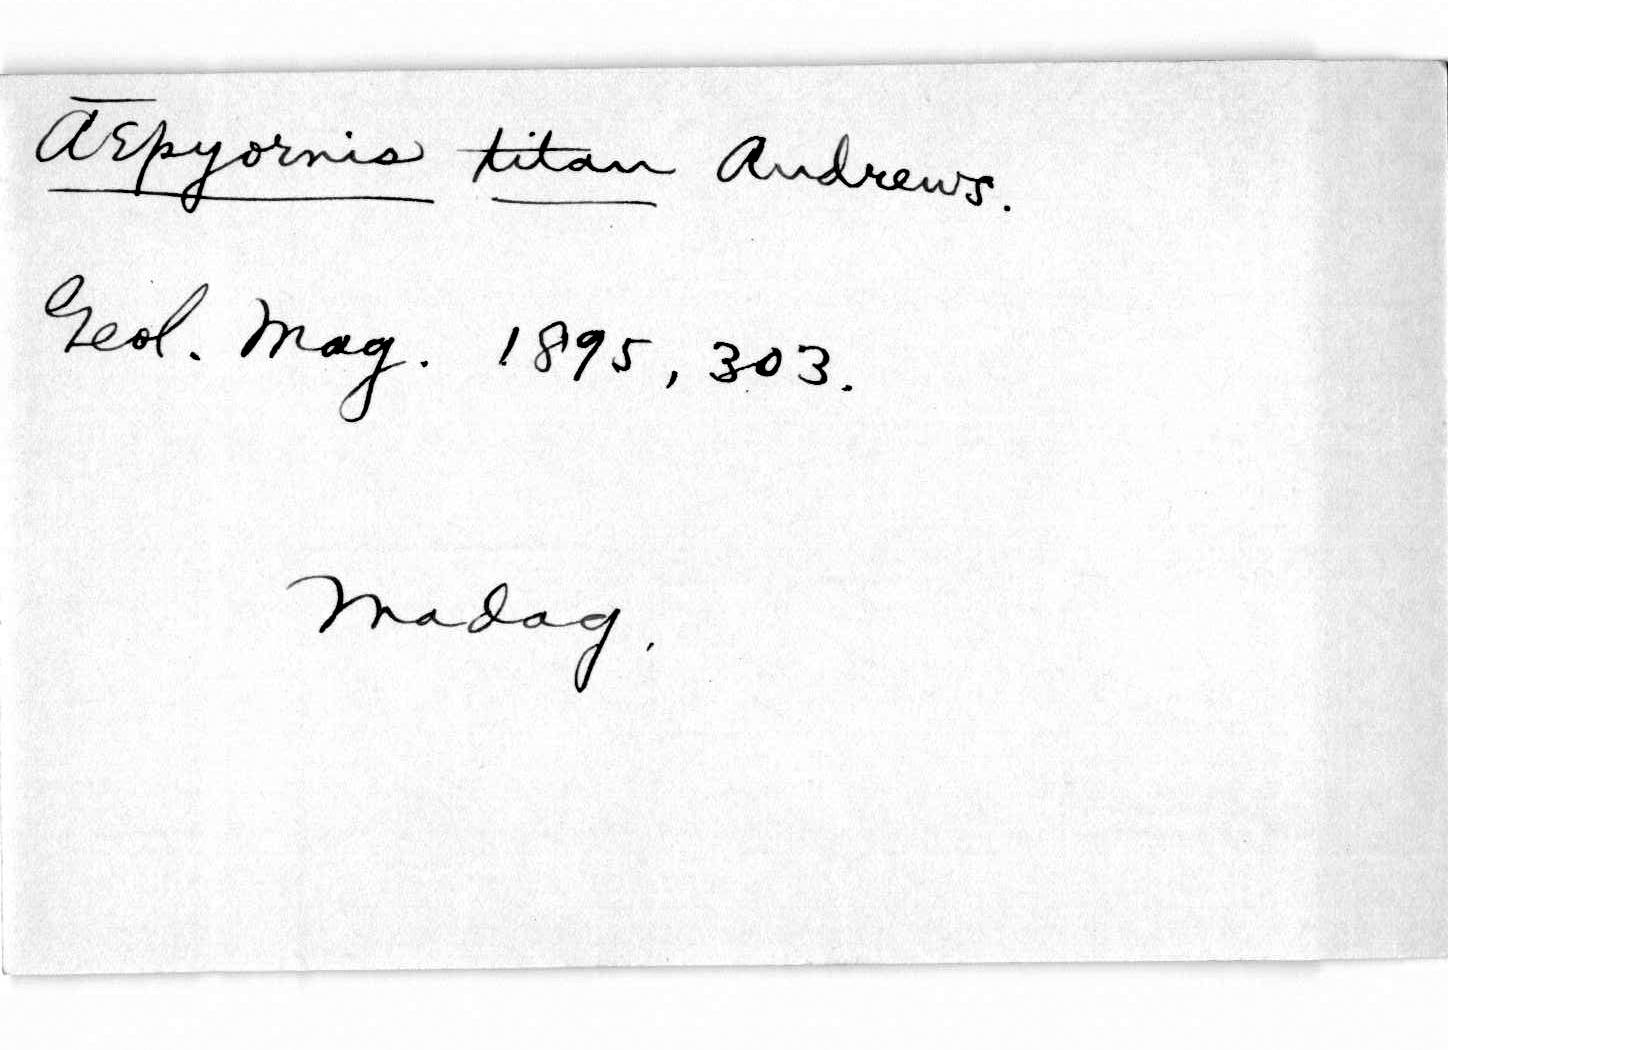 Æpyornis titan Andrews.
Geol. Mag. 1895, 303.
Madag.